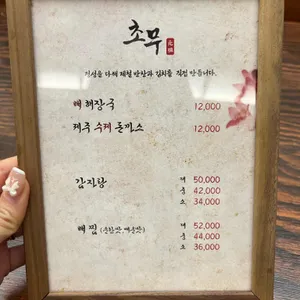 초무
정성을 다해 제철 반찬과 김치를 직접 만듭니다.
뼈 해장국 12,000
제주 수제 돈까스 12,000
감자탕 대 50,000
중 42,000
소 34,000
뼈찜 (순한맛, 매운맛) 대 52,000
중 44,000
소 36,000